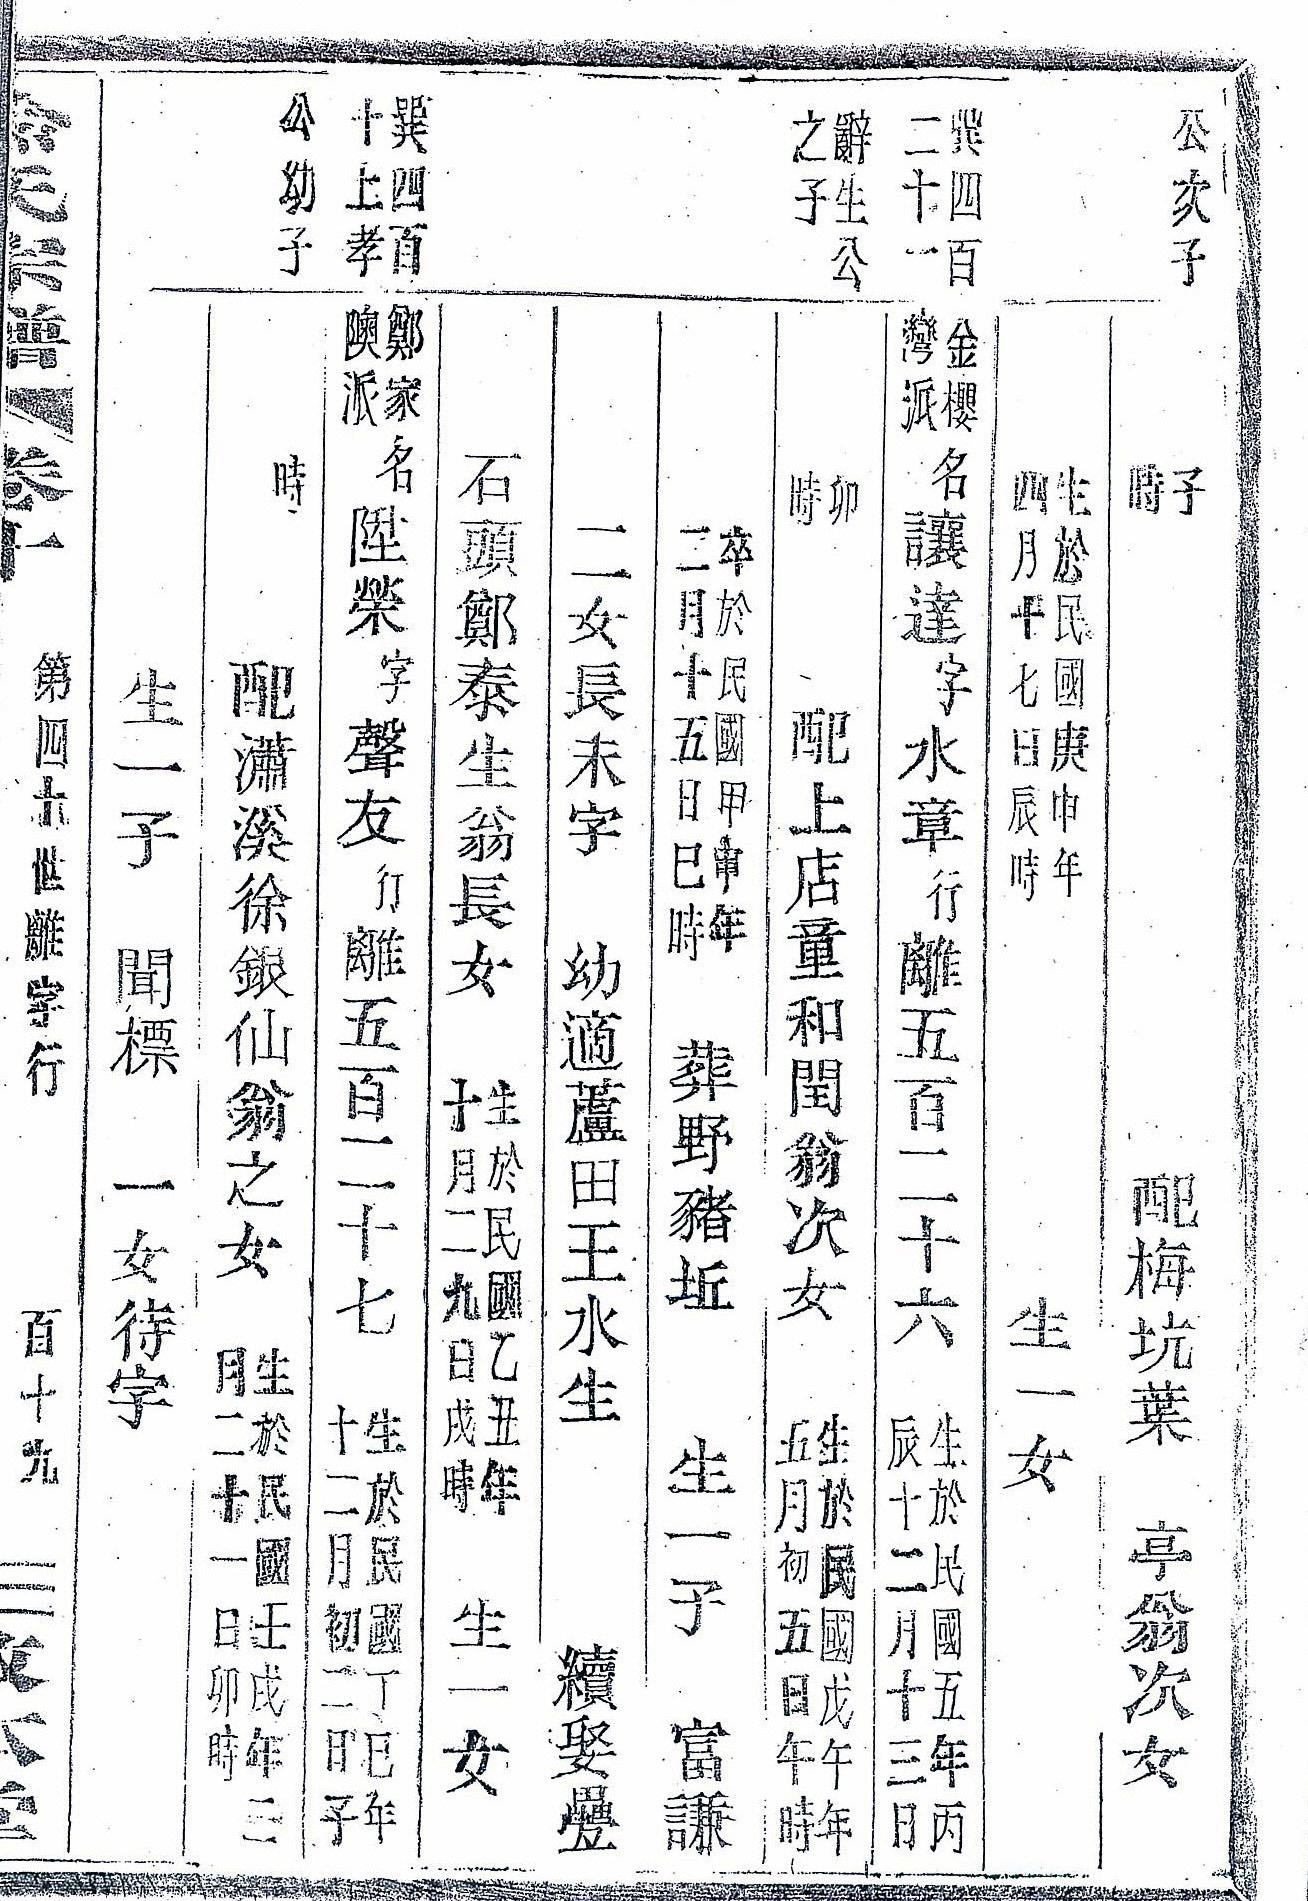 公次子
子
時
配梅坑葉 亭翁次女
生於民國庚申年
四月十七日辰時
生一女
巽四百
二十一
金櫻
灣派
名讓達字水章行離五百二十六
生於民國五年丙
辰十二月十三日
辭生公
之子
卯
時
配上店童和閏翁次女
生於民國戊午年
五月初五日午時
卒於民國甲申年
二月十五日巳時
葬野豬坵 生一子 富謙
二女長未字 幼適蘆田王水生 續娶疊
石頭鄭泰生翁長女
生於民國乙丑年
十月二九日戌時
生一女
巽四百
十上孝
鄭家
隩派
名陞榮字聲友行離五百二十七
生於民國丁巳年
十二月初二日子
公幼子
時
配瀟溪徐銀仙翁之女
生於民國壬戌年三
月二十一日卯時
生一子 聞標 一女待字
氏宗譜 卷一 第四十六世離字行 百十九 三